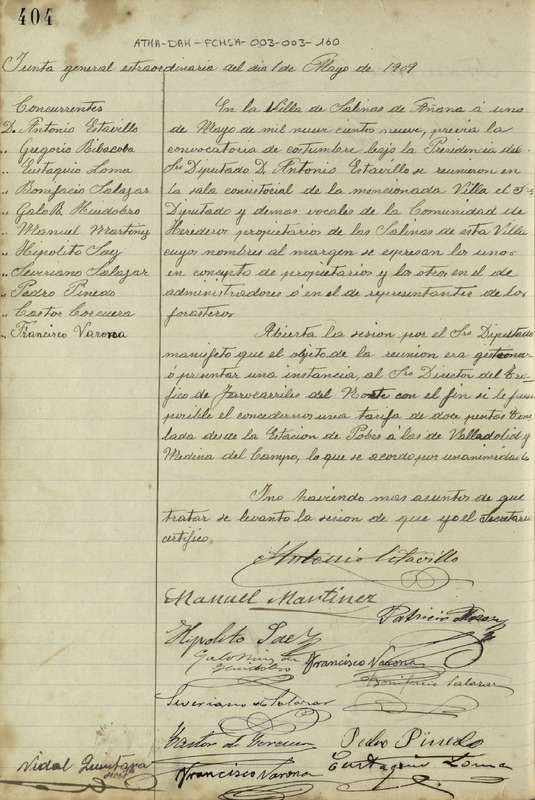 404
ATHA-DAH-FCHSA-003-003-160
Junta general extraordinaria del dia 1 de Mayo de 1909
Concurrentes
D. Antonio Estavillo
" Gregorio Ribacoba
" Eustaquio Loma
" Bonifacio Salazar
" Galo R. Huidobro
" Manuel Martinez
" Hipolito Saez
" Severiano Salazar
" Pedro Pinedo
" Castor Corcuera
" Francisco Varona
En la Villa de Salinas de Añana á uno
de Mayo de mil nueve cientos nueve, previa la
convocatoria de costumbre bajo la Presidencia del
Sr Diputado D. Antonio Estavillo se reunieron en
la sala consistorial de la mencionada Villa el Sr
Diputado y demas vocales de la Comunidad de
Herederos propietarios de las Salinas de esta Villa
cuyos nombres al margen se espresan los unos
en concepto de propietarios y los otros en el de
administradores ó en el de representantes de los
forasteros
Abierta la sesion por el Sr Diputado
manifesto que el objeto de la reunion era gestionar
ó presentar una instancia, al Sr Director del Tra-
fico de Farocarriles del Norte con el fin si le fuese
posible el concedernos una tarifa de doce pesetas tone
lada desde la Estacion de Pobes á las de Valladolid y
Medina del Campo, lo que se acordo por unanimidad
I no haviendo mas asuntos de que
tratar se levanto la sesion de que yo el Secretario
certifico.
Antonio Estavillo
Manuel Martinez
Patricio
Hipolito Saez
Galo Ruiz de
Huidobro
Francisco Varona
Bonifacio Salazar
Severiano de Salazar
Castor de Corcuera
Pedro Pinedo
Vidal Quintana
Francisco Varona
Eustaquio Loma